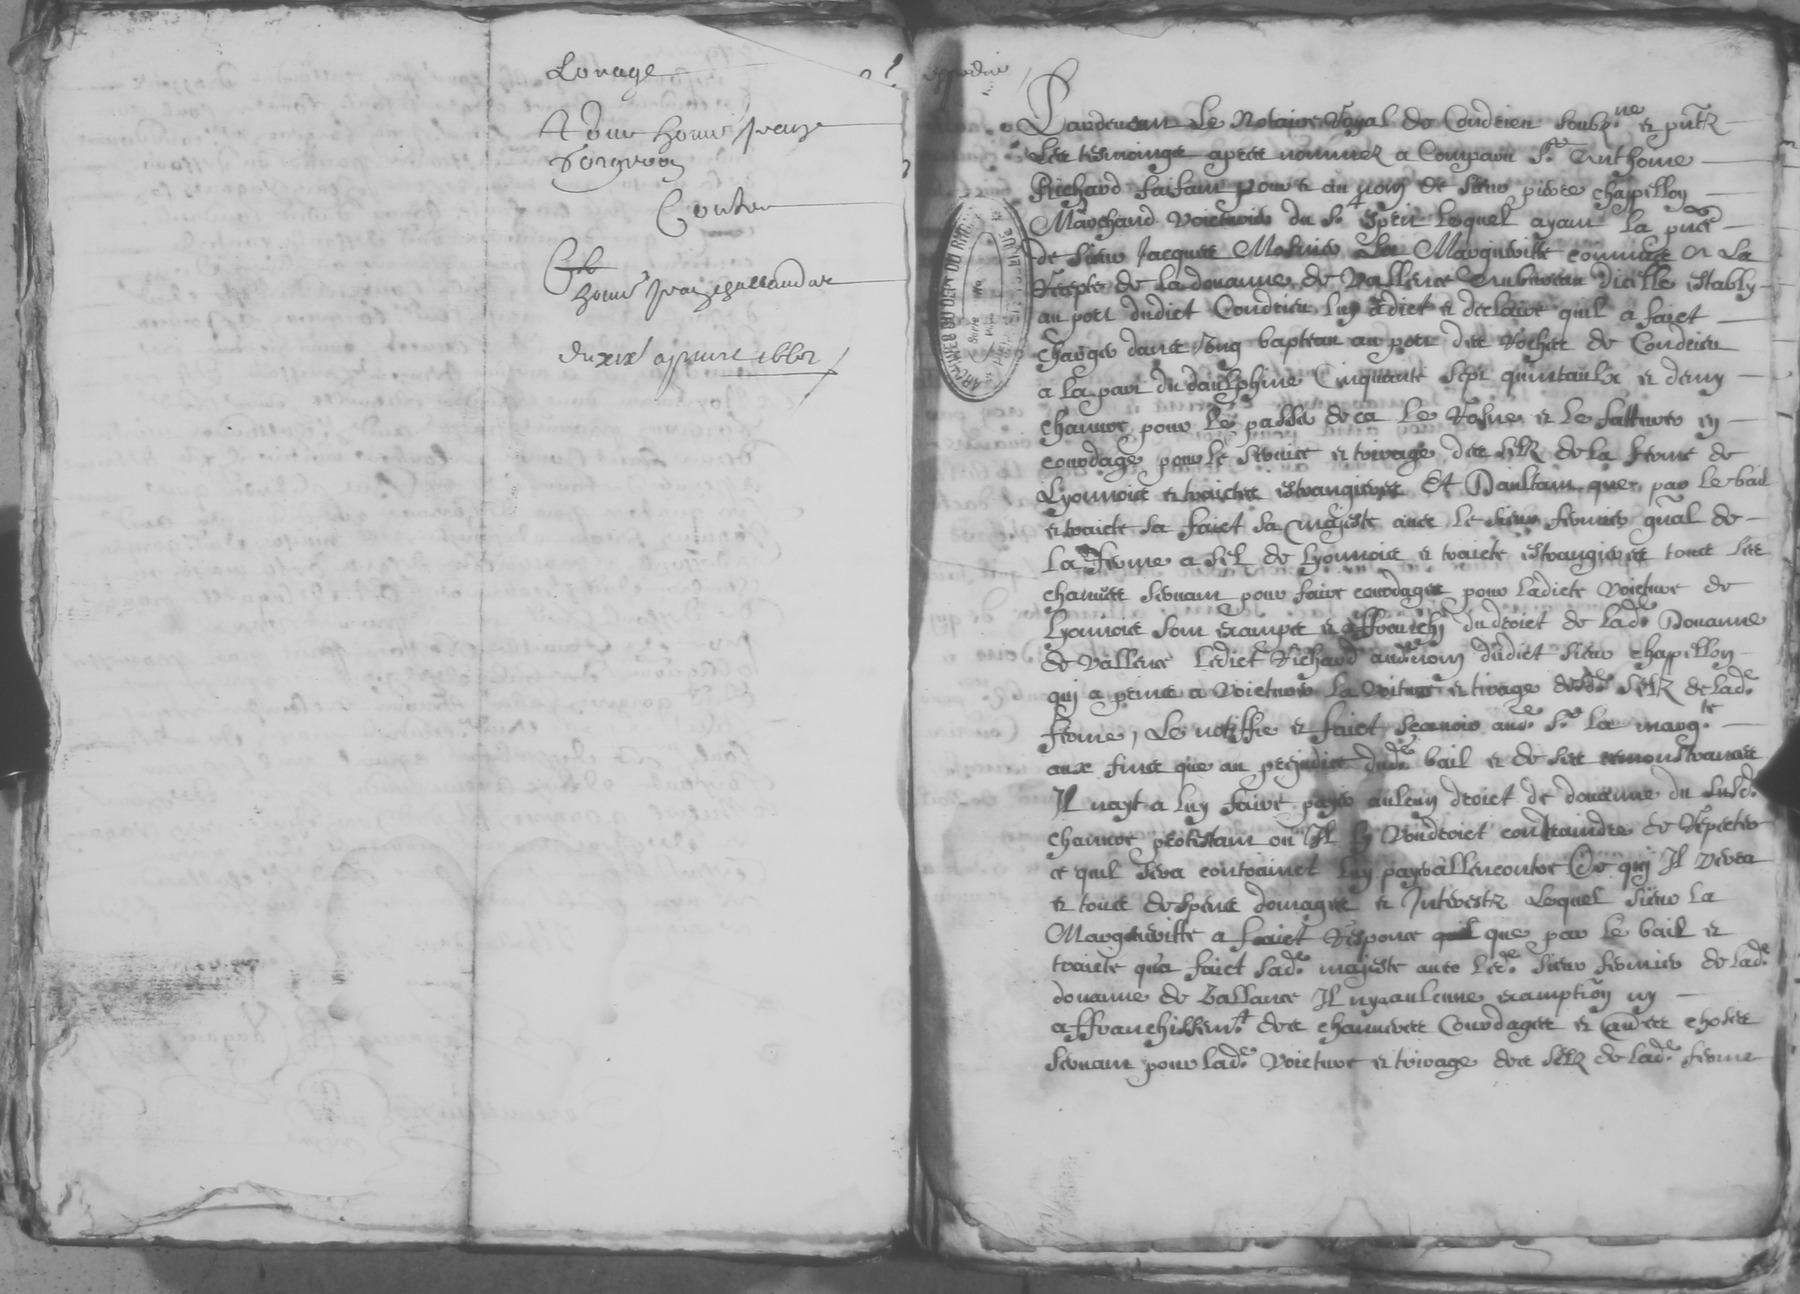 Louage
A donne honne
Contre
du xix apvril 1661
Pardevant Le Notaire Royal de Condrieu soubz.ne et pntz
Les tesmoings apres nommez a Comparu Sr. Anthoine
Richard faisant pour et au nom de sieur pierre chappillon
Marchand voieturier du St. Esprit lequel ayant la pnce
de sieur Jacques La Margueritte commis a La
Recepte de la douanne de Vallence Vieille establye
au port dudict Condrieu luy a dict et declaire quil a faict
charger dans ung bapteau au port des Roches de Condrieu
a la part du daulphine Cinquante sept quintaulx et demy
chanvre pour le passer deca le Rosne et le en
courdage pour le service et tirage des selz de la ferme de
Lyonnois et traictes estrangieres Et Daultant que par le bail
et traicte sa faict sa Majeste avec le sieur fermier gnal de
La ferme a sel de Lyonnois et traicte estrangieres tous les
chanvres servant pour faire courdages pour ladicte voieture de
Lyonnois sont exampts et affranchi du droict de lad. Douanne
de Vallence Ledict Richard aud nom dudict sieur chappillon
qui a prins a voieturer La voiture et tirage desd. selz de lad.
ferme, Le notiffie et faict scavoir aud. Sr. La marg.te
aux fins que au prejudice dud. bail et de ses remonstrances
Il nayt a luy faire payer aulcun droict de douanne du susd.
chanvre protestant ou Il Voudroict contraindre de Repecter
ce quil sera contrainct luy payer allencontre De qui Il verra
et tous despens domages et Interestz Lequel sieur La
Margueritte a faict Responce que par le bail et
traicte qua faict sad. majeste avec led. sieur fermier de lad.
douanne de Vallance Il ny a aulcune examption ny
affranchissem.t des chanvres Courdages et autres choses
servant pour lad. voieture et tirage des selz de lad. ferme